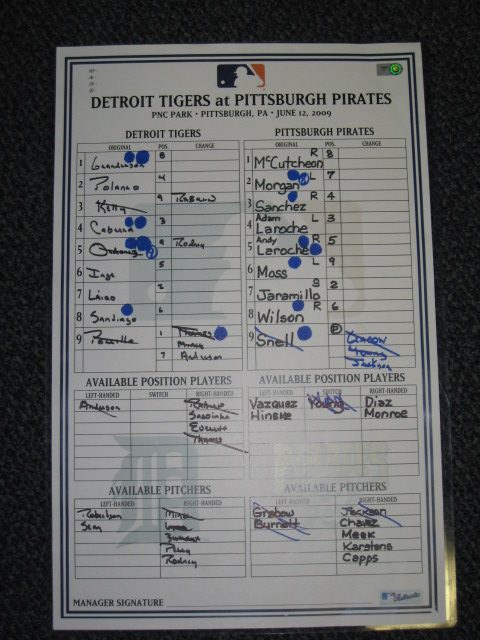 DETROIT TIGERS at PITTSBURGH PIRATES
PNC PARK • PITTSBURGH, PA • JUNE 12, 2009
DETROIT TIGERS
ORIGINAL POS. CHANGE
1 Granderson 8
2 Polanco 4
3 Kelly 9 Raburn
4 Cabrera 3
5 Ordonez 9 Rodney
6 Inge 5
7 Laird 2
8 Santiago 6
9 Porcello 1 Thames
Miner
7 Anderson
PITTSBURGH PIRATES
ORIGINAL POS. CHANGE
1 McCutcheon R 8
2 Morgan L 7
3 Sanchez R 4
4 Adam Laroche L 3
5 Andy Laroche R 5
6 Moss L 9
7 Jaramillo S 2
8 Wilson R 6
9 Snell P Grabow
Young
Jackson
AVAILABLE POSITION PLAYERS
LEFT-HANDED SWITCH RIGHT-HANDED
Anderson Raburn
Sardinha
Everett
Thames
AVAILABLE POSITION PLAYERS
LEFT-HANDED SWITCH RIGHT-HANDED
Vazquez Young Diaz
Hinske Monroe
AVAILABLE PITCHERS
LEFT-HANDED RIGHT-HANDED
Robertson Miner
Seay Lyon
Zumaya
Perry
Rodney
AVAILABLE PITCHERS
LEFT-HANDED RIGHT-HANDED
Grabow Jackson
Burnett Chavez
Meek
Karstens
Capps
MANAGER SIGNATURE
Authentic